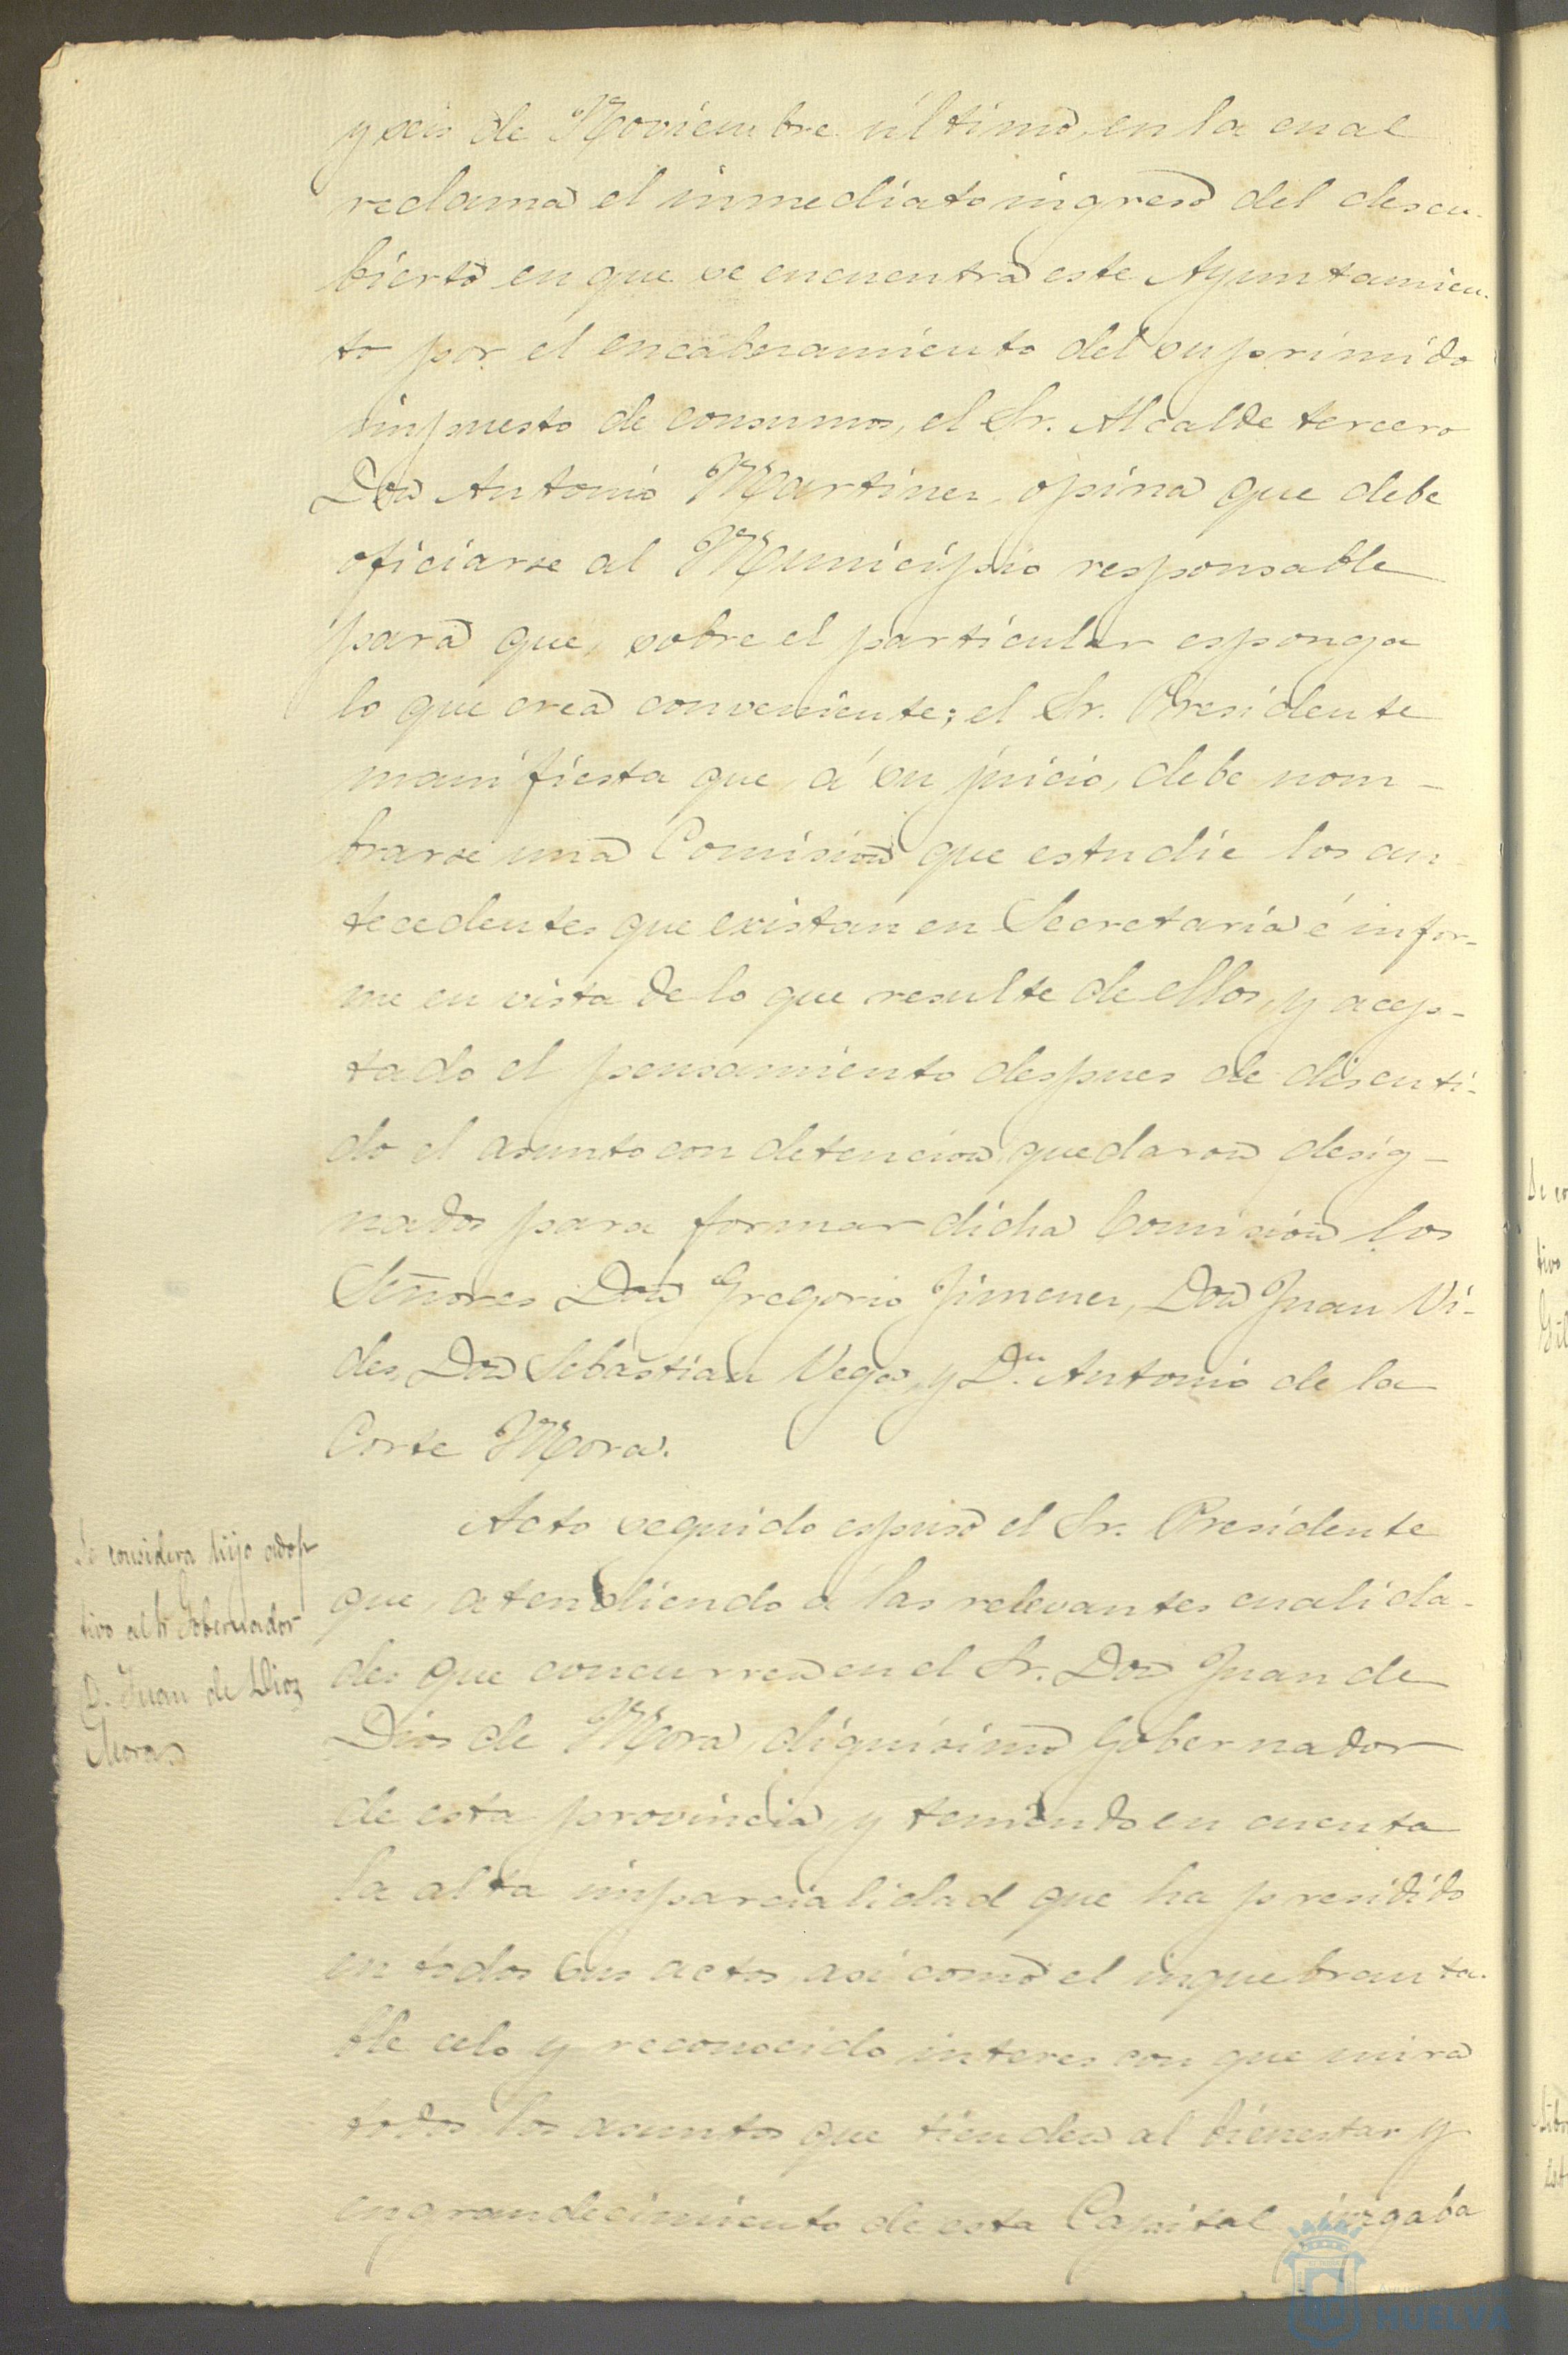 y seis de Noviembre último, en la cual
reclama el inmediato ingreso del descu-
bierto en que se encuentra este Ayuntamien-
to por el encabezamiento del suprimido
impuesto de consumos, el Sr. Alcalde tercero
Don Antonio Martinez, opina que debe
oficiarse al Municipio responsable
para que, sobre el particular esponga
lo que crea conveniente; el Sr. Presidente
manifiesta que, á su juicio, debe nom-
brarse una Comision que estudie los an
tecedentes que existan en Secretaría é infor-
me en vista de lo que resulte de ellos, y acep-
tado el pensamiento despues de discuti-
do el asunto con detencion, quedaron desig-
nados para formar dicha Comision los
Señores Don Gregorio Jimenez, Don Juan Vi-
des, Don Sebastian Vega, y Dn. Antonio de la
Corte Mora.
Se considera hijo adop
tivo al Sr Gobernador
D. Juan de Dios
Mora
Acto seguido espuso el Sr. Presidente
que, atendiendo a las relevantes cualida-
des que concurren en el Sr. Don Juan de
Dios de Mora, dignisimo Gobernador
de esta provincia, y teniendo en cuenta
la alta imparcialidad que ha presidido
en todos sus actos, asi como el inquebranta-
ble celo y reconocido interes con que mira
todos los asuntos que tienden al bienestar y
engrandecimiento de esta Capital, juzgaba
HUELVA